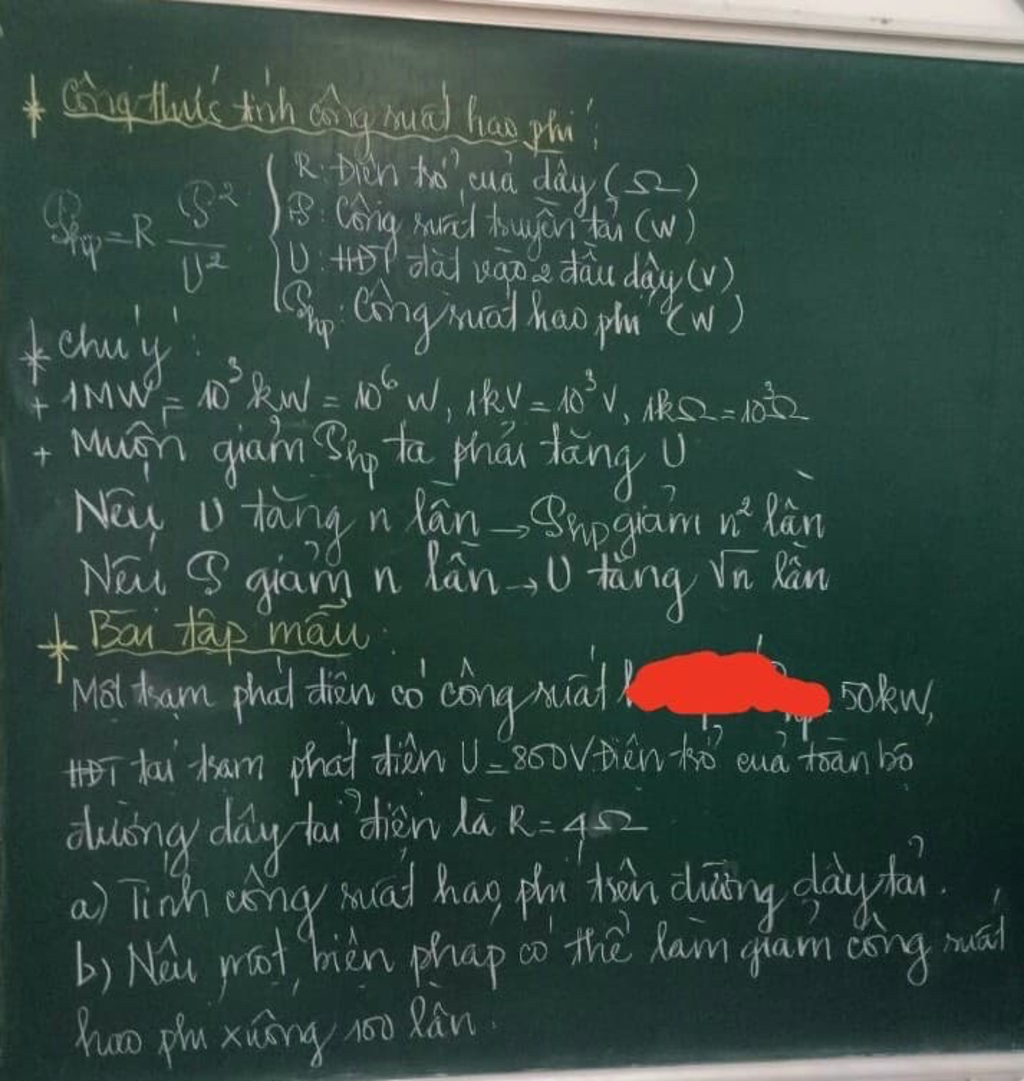 * Công thức tính công suất hao phí:
𝒫hp = R 𝒫²/U²
R: Điện trở của dây (Ω)
𝒫: Công suất truyền tải (W)
U: HĐT đặt vào 2 đầu dây (V)
𝒫hp: Công suất hao phí (W)
* Chú ý:
+ 1MW = 10³ kW = 10⁶ W, 1kV = 10³V, 1kΩ = 10³Ω
+ Muốn giảm 𝒫hp ta phải tăng U
Nếu U tăng n lần → 𝒫hp giảm n² lần
Nếu 𝒫 giảm n lần → U tăng √n lần
* Bài tập mẫu:
Một trạm phát điện có công suất 50kW,
HĐT tại trạm phát điện U = 800V. Điện trở của toàn bộ
đường dây tải điện là R = 4Ω
a) Tính công suất hao phí trên đường dây tải.
b) Nêu một biện pháp có thể làm giảm công suất
hao phí xuống 100 lần.